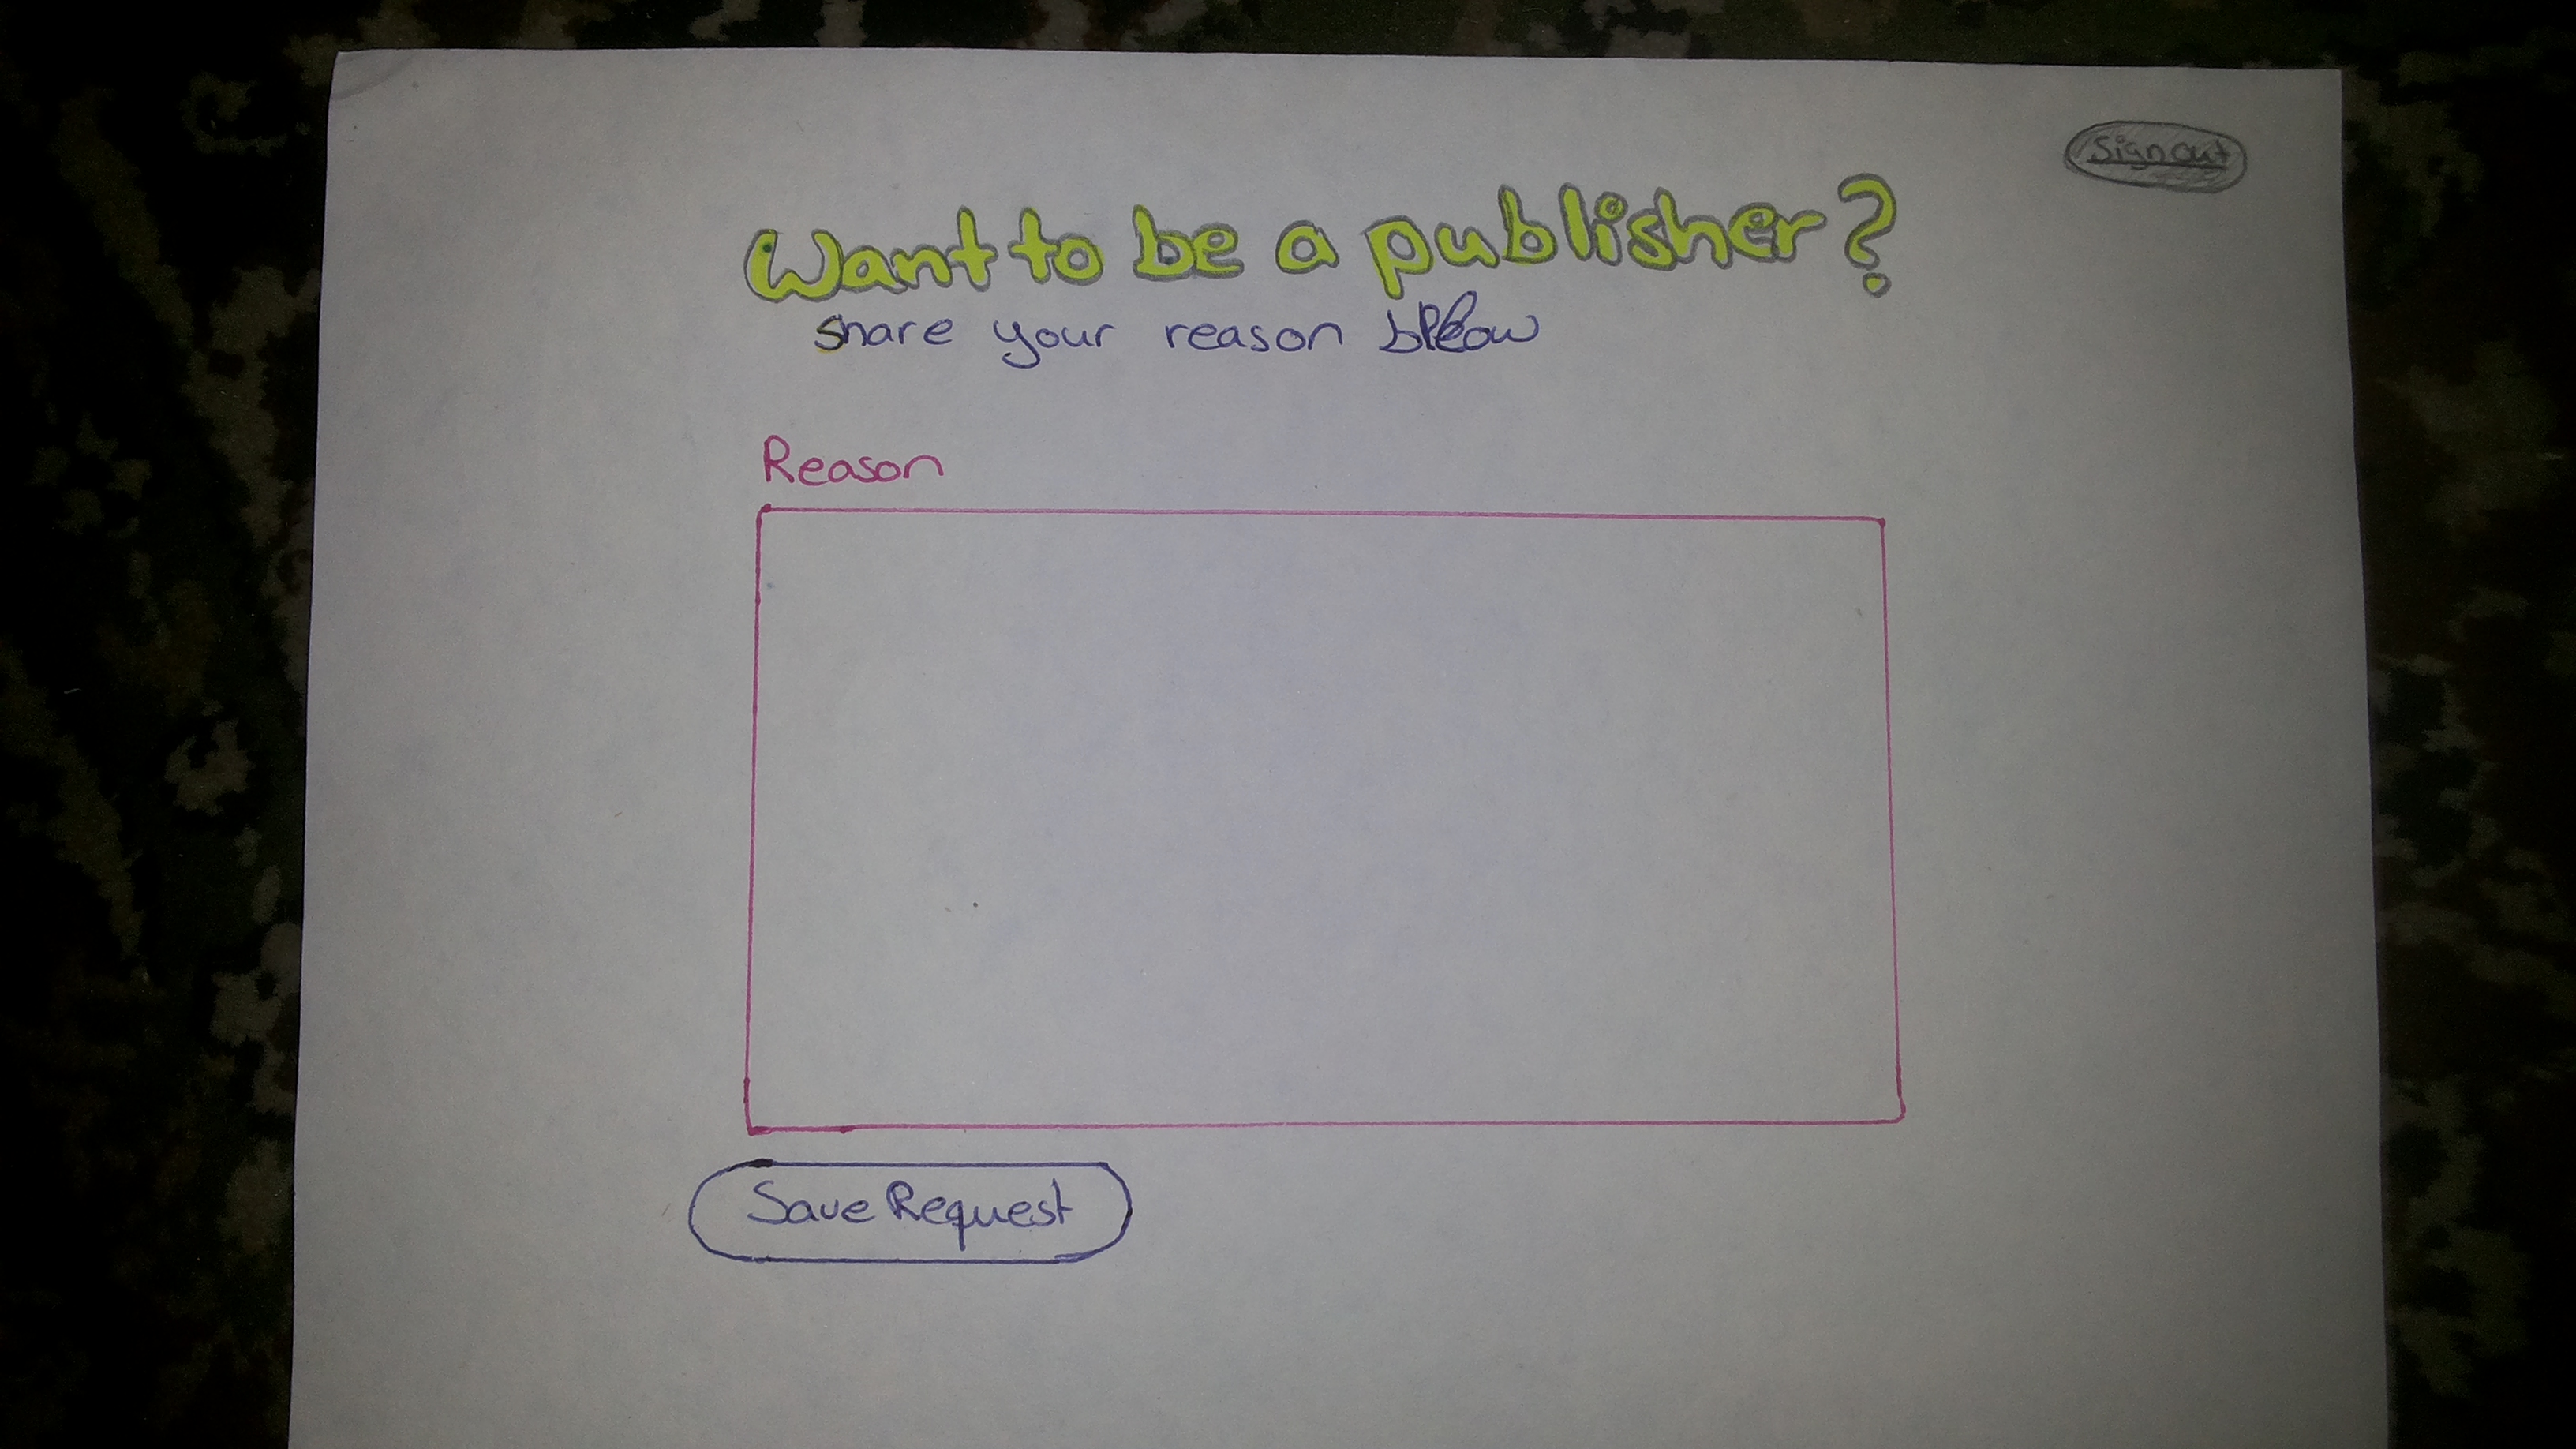 Sign out
Want to be a publisher?
Share your reason below
Reason
Save Request